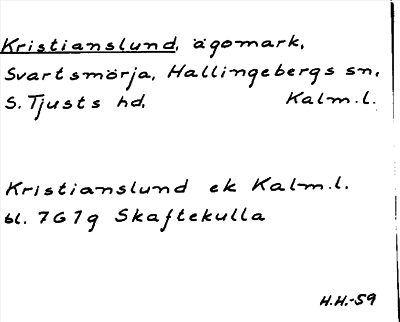 Kristianslund, ägomark,
Svartsmörja, Hallingebergs sn,
S. Tjusts hd. Kalm.l.
Kristianslund ek Kalm.l.
bl. 7G7g Skaftekulla
H.H.-59